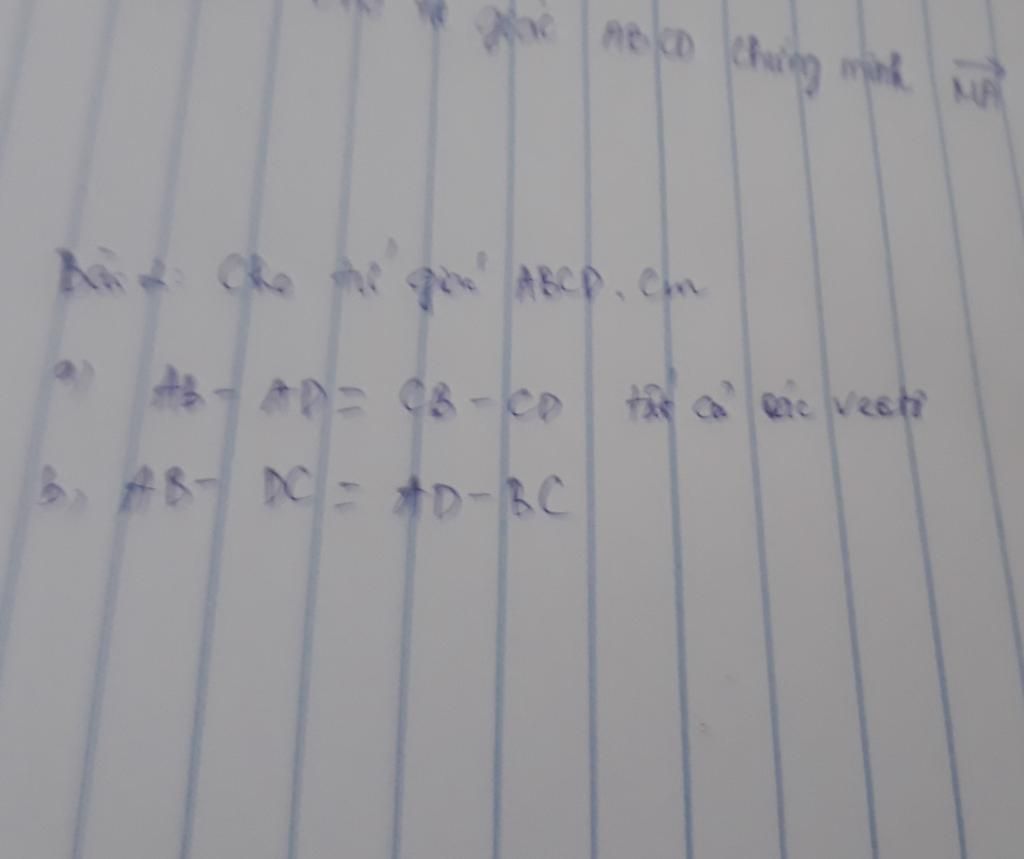 giác ABCD chứng minh MA
Bài 2: Cho tứ giác ABCD. Cm
a) AB - AD = CB - CD tất cả các vectơ
b, AB - DC = AD - BC